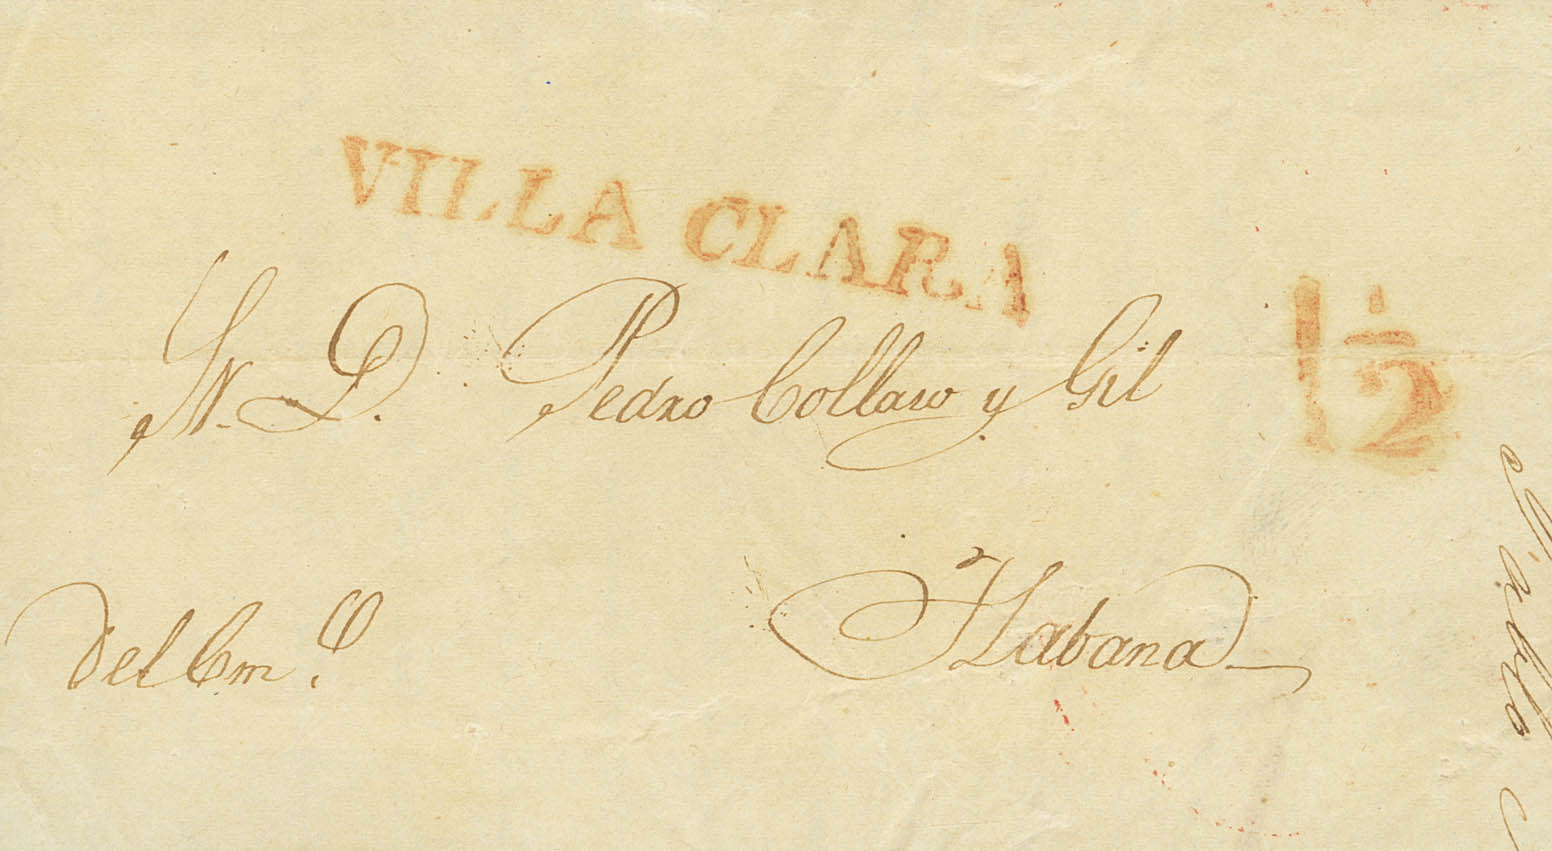 VILLA CLARA
Sr. D. Pedro Collaso y Gil
1 1/2
Habana
Del Com.